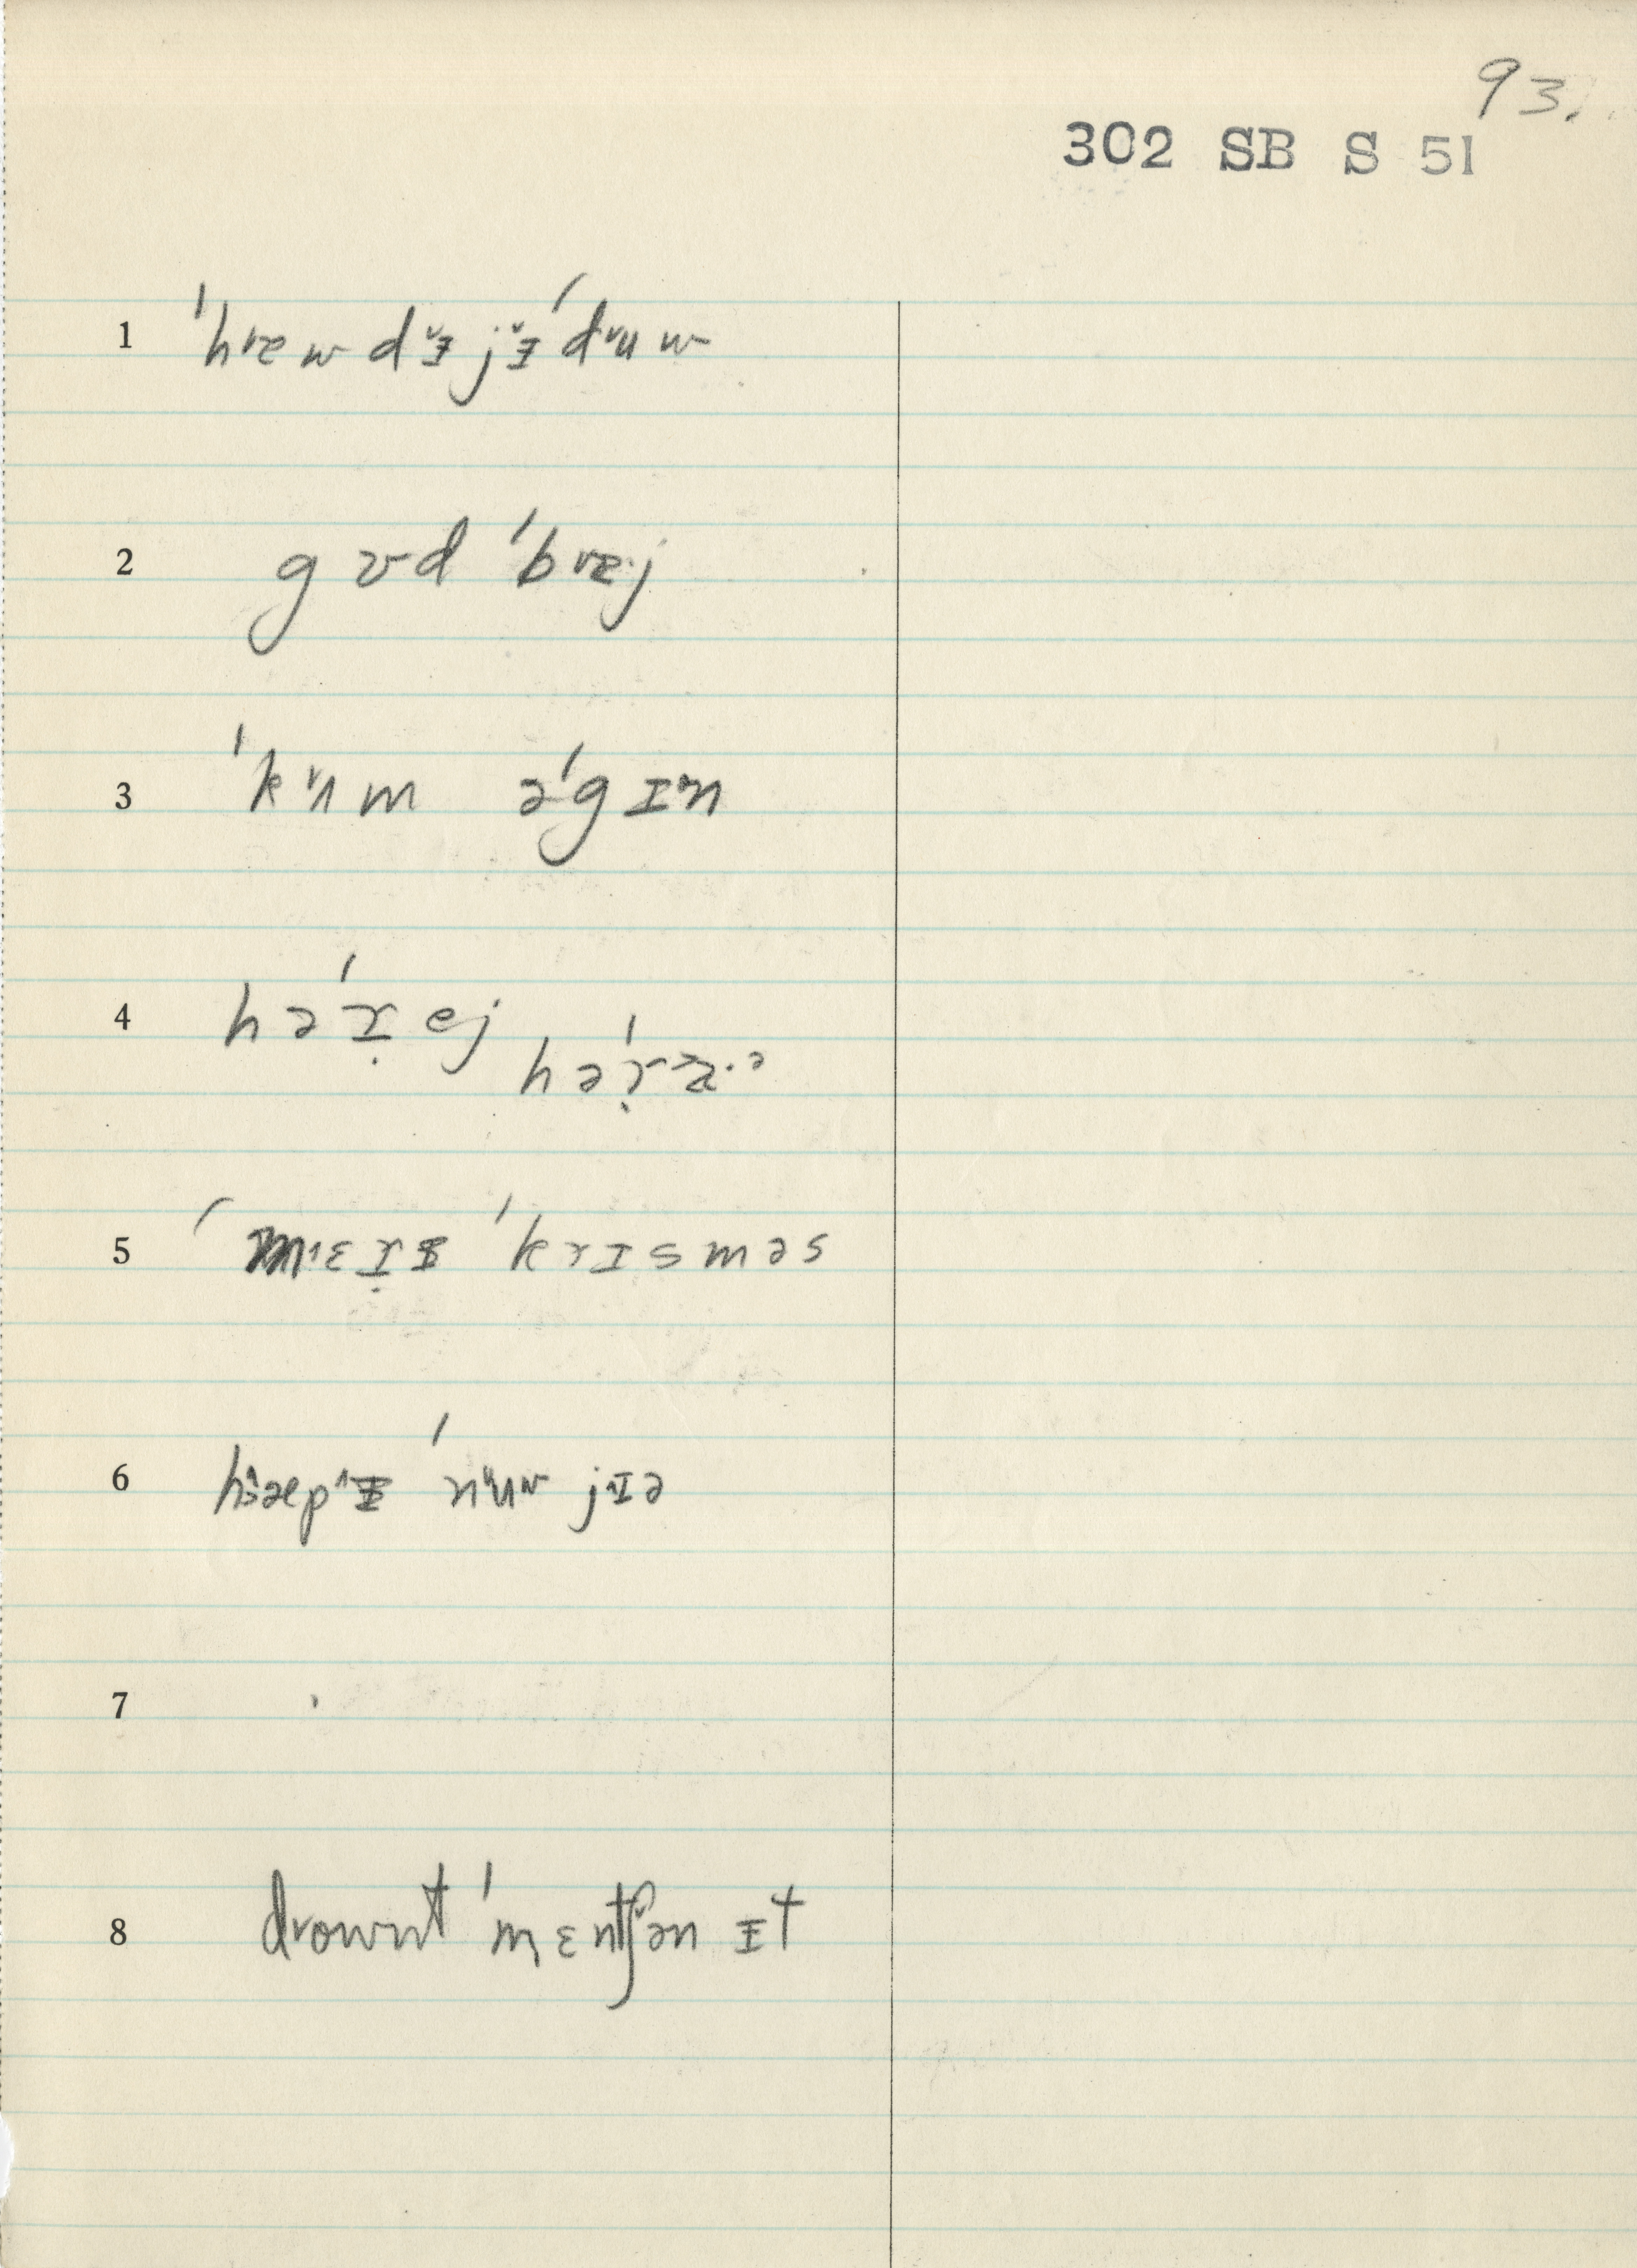 93.
302 SB S 51
1 ˈhæ˅w dɪ˅̵ jɪ˅̵ ˈdu˅w
2 gʊd ˈbæ˅·j
3 ˈkʌ˅m əˈgɪ˅n
4 həˈɾ̣ej
həˈɾ̣æ·ᵊ
5 ˈmɛ^ɾ̣ɪ̵ ˈkrɪsməs
6 hæ^pɪ̵^ ˈnu˅w jɪ˅ə
7
8 drownt ˈmɛntʃən ɪ̵t